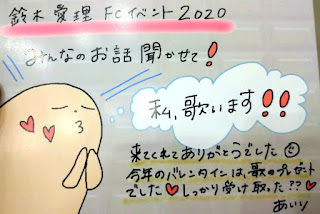 鈴木愛理 FCイベント2020
みんなのお話聞かせて!
私、歌います!!
来てくれてありがとうでした
今年のバレンタインは、歌のプレゼント
でした♥しっかり受け取った??♥
あいり